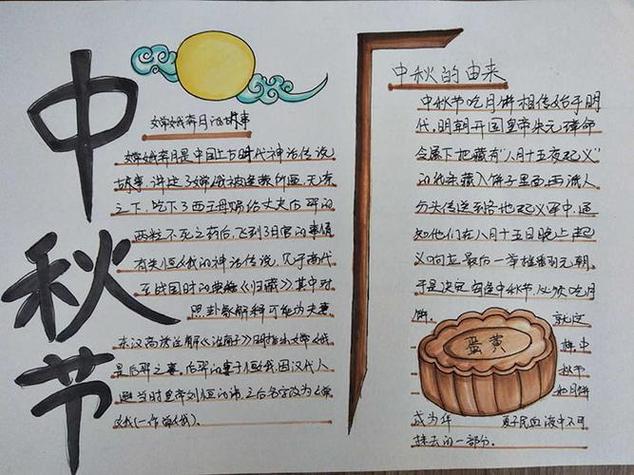 中秋节
嫦娥奔月的故事
嫦娥奔月是中国上古时代神话传说
故事,讲述了嫦娥被逢蒙所逼,无奈
之下,吃下了西王母赐给丈夫后羿的
两粒不死之药后,飞到月宫的事情
有关恒娥的神话传说,见于商代
至战国时的典籍《归藏》其中对
卦象解释可能为夫妻
东汉高诱注解《淮南子》时指出嫦娥
是后羿之妻,后羿的妻子恒娥,因汉代人
避当时皇帝刘恒的讳,之后名字改为嫦
娥(一作姮娥)。
中秋的由来
中秋节吃月饼相传始于明
代,明朝开国皇帝朱元璋命
令属下把藏有"八月十五夜起义"
的纸条藏入饼子里面,再派人
分头传送到各地起义军中,通
知他们在八月十五日晚上起
义响应,最后一举推翻元朝,
于是中秋节吃月
饼 就这
样中
蛋黄
秋节
和月饼
成为华 夏子民血液中不可
抹去的一部分。